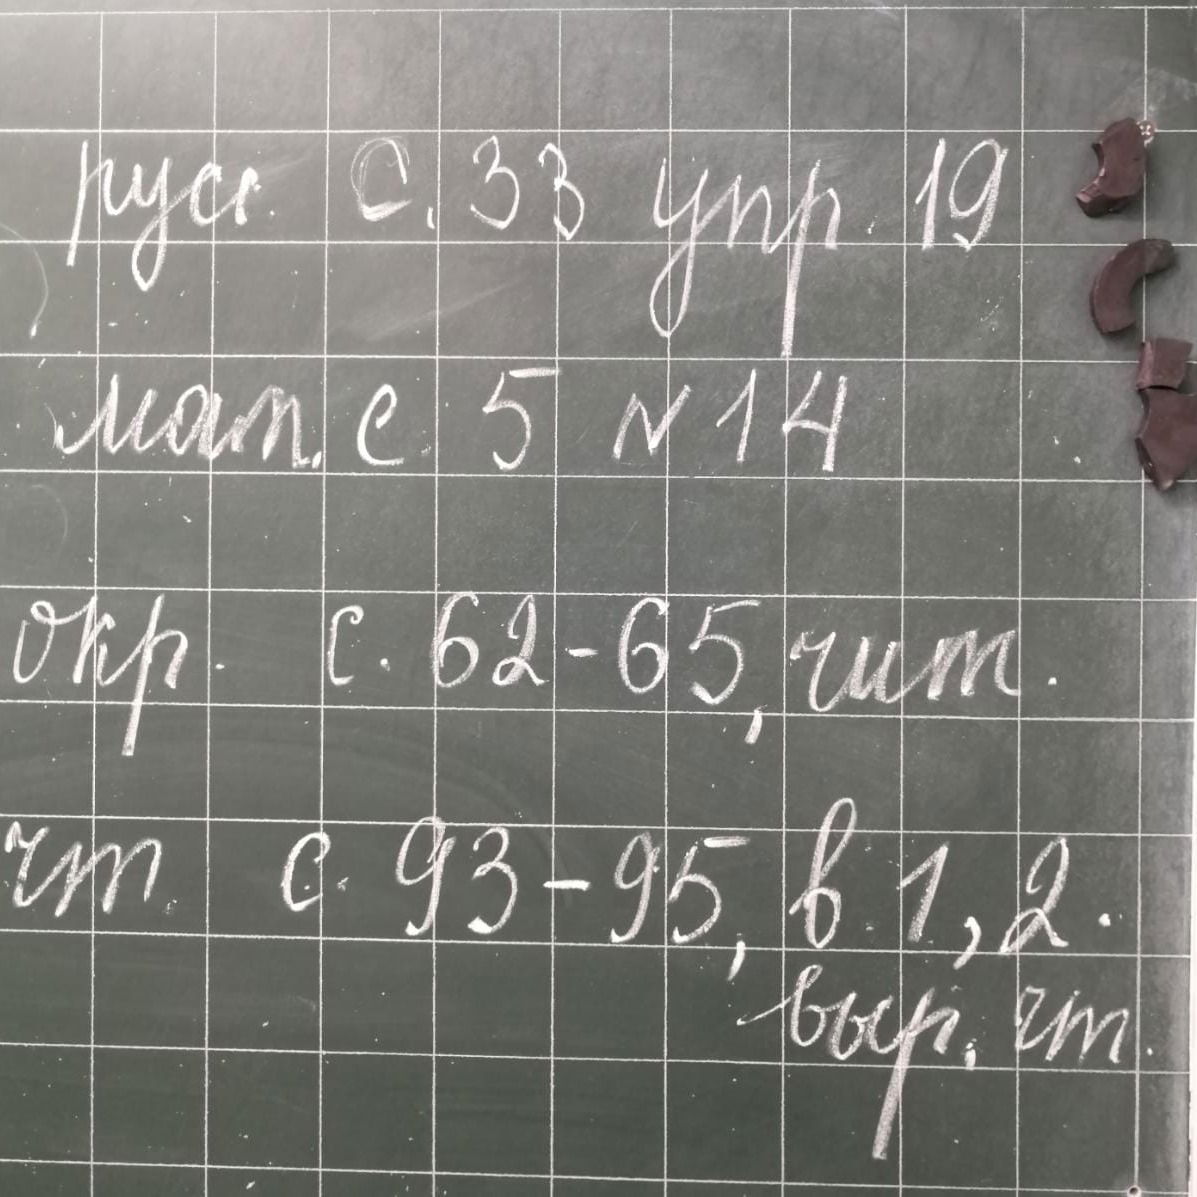 русск. с. 33 упр. 19
мат. с. 5 № 14
окр. с. 62-65, чит.
чт. с. 93-95, в. 1, 2.
выр. чт.